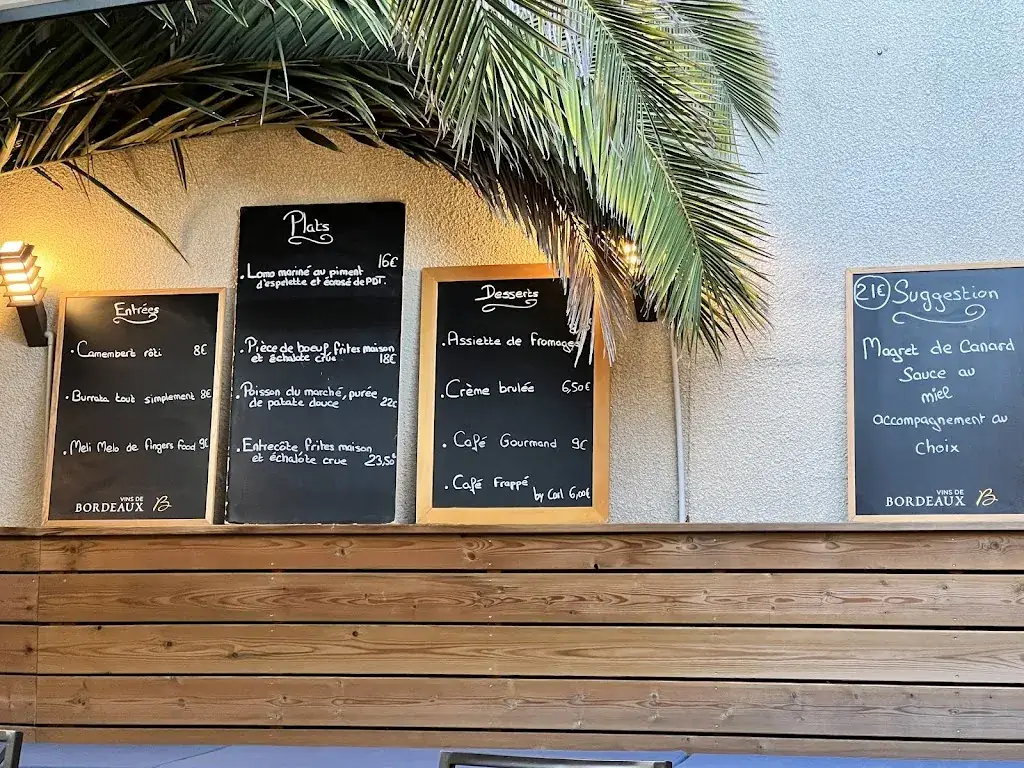 Entrées
. Camembert rôti 8€
. Burrata tout simplement 8€
. Meli Melo de fingers food 9€
VINS DE
BORDEAUX B
Plats
16€
. Lomo mariné au piment
d'espelette et écrasé de PDT.
. Pièce de boeuf, frites maison
et échalote crue 18€
. Poisson du marché, purée
de patate douce 22€
. Entrecôte frites maison
et échalote crue 23,50€
Desserts
. Assiette de Fromages
. Crème brulée 6,50€
. Café Gourmand 9€
. Café Frappé
by Carl 6,00€
21€ Suggestion
Magret de Canard
Sauce au
miel
accompagnement au
Choix
VINS DE
BORDEAUX B